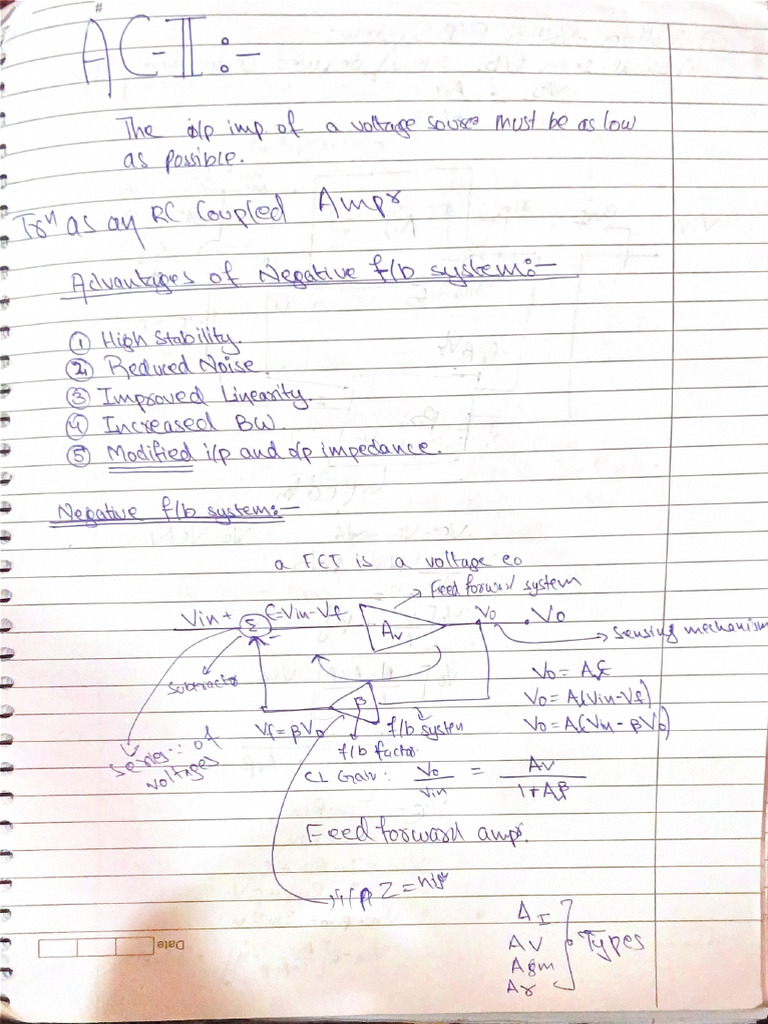 #
AC-II :-
The o/p imp of a voltage source must be as low
as possible.
Trn as an RC Coupled Ampr
Advantages of Negative f/b system:-
① High Stability.
② Reduced Noise.
③ Improved Linearity.
④ Increased BW.
⑤ Modified i/p and o/p impedance.
Negative f/b system:-
a FET is a voltage
Feed forward system
Vin + Σ ε=Vin-Vf Av Vo . Vo
sensing mechanism
subtractor
β
Vo = Aε
Vo = A(Vin-Vf)
Vf=βVo f/b system Vo = A(Vin - βVo)
series ∵ of
voltages
f/b factor
CL Gain: Vo/Vin = Av/1+Aβ
Feed forward ampr.
i/p Z = high
AI
AV
Agm
Ar
Types
Date